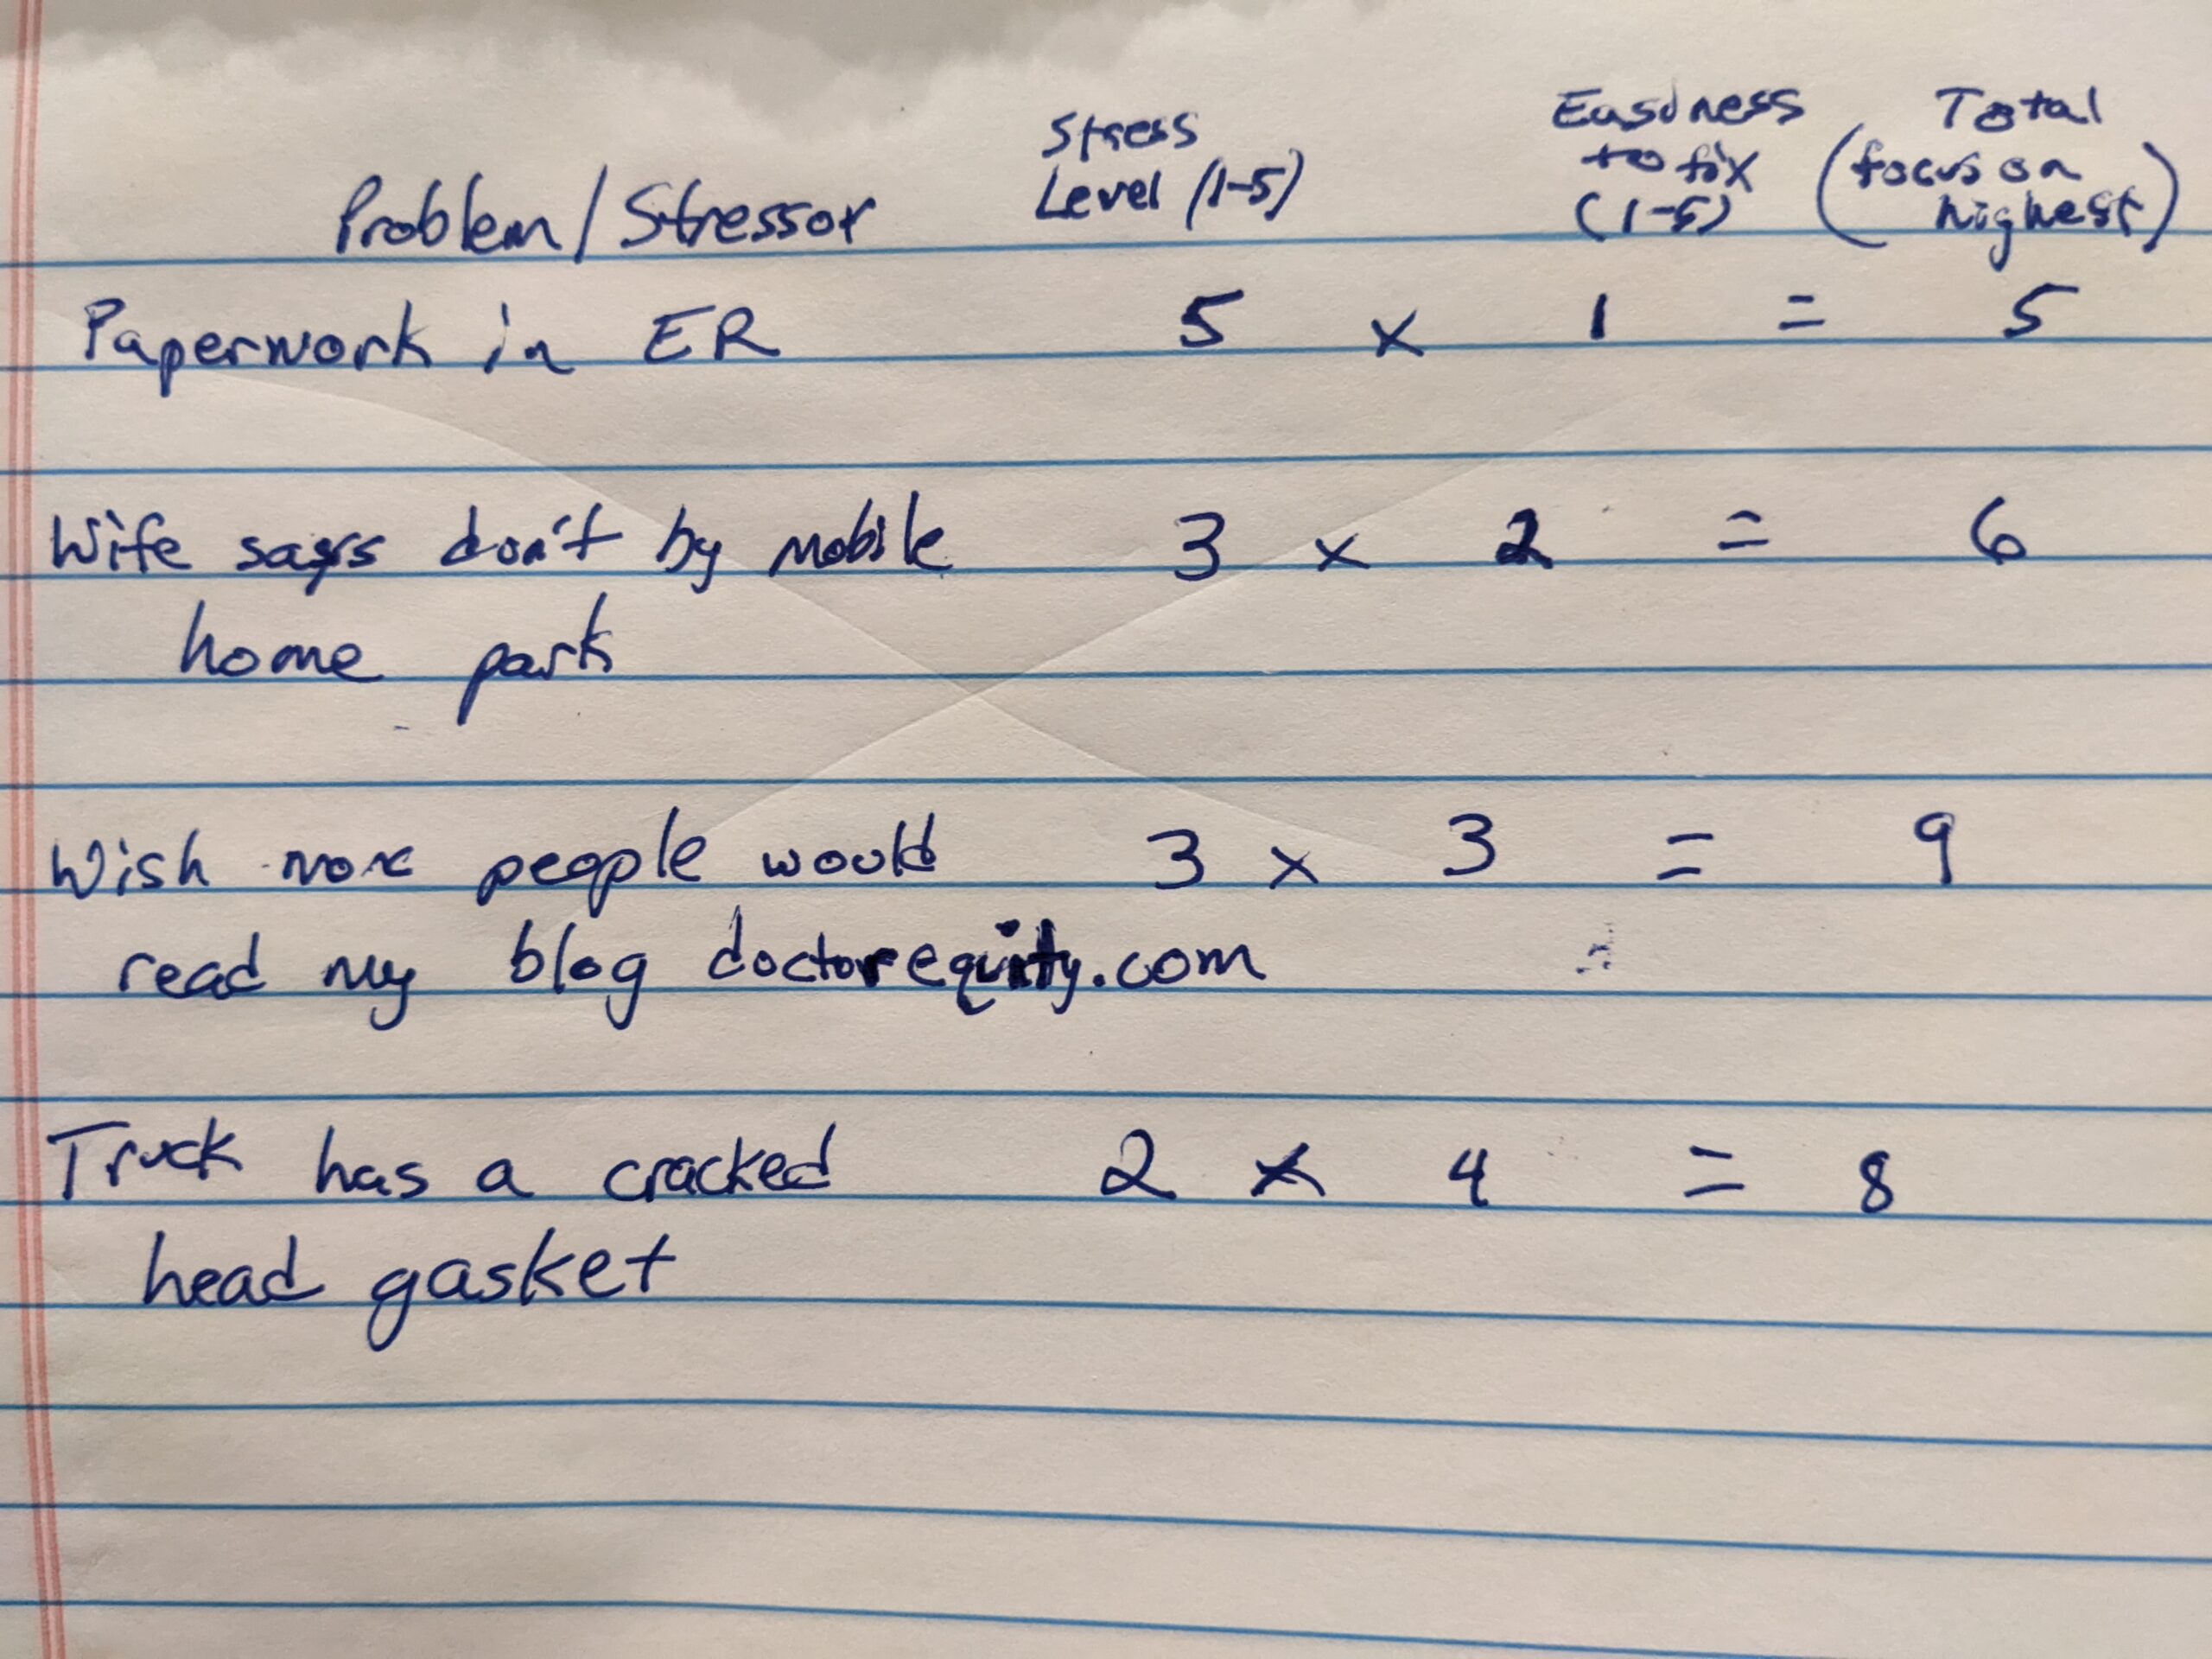 Problem/Stressor Stress Level (1-5) Easiness to fix (1-5) Total (focus on highest)
Paperwork in ER 5 x 1 = 5
Wife says don't by mobile 3 x 2 = 6
home park
Wish more people would 3 x 3 = 9
read my blog doctorequity.com
Truck has a cracked 2 x 4 = 8
head gasket